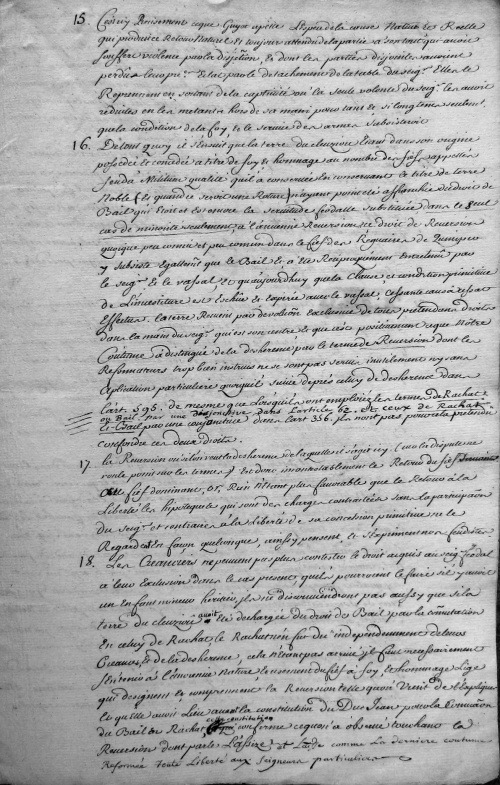 15. Cecy Précisement ceque Guyot apelle Espou de la cause Nature et Reelle
qui produit ce Retour Naturel et toujours attendu de la partie a son tout qui avoit
souffert violence par la disjonction, et dont les parties disjointes avoient
perdu leur par le detachement de la table du seigr. Elles le
Reprennent en sortant de la captivité ou la seule volonté du seigr les avoit
reduites en les metant hors de sa main pour tant et si longtems seulement
que la condition de la foy et le service des armes subsisteroit
16. De tout quoy il s'ensuit que la terre du cluziou Etant dans son origine
possedée et concedée a titre de foy et hommage au nombre des fiefs appellés
feuda Militum qualité qu'il a conservée en conservant le titre de terre
Noble (et quand ce seroit une Roture) n'ayant point eté affranchie du droit de
Bail qui Etoit et est encore la servitude feodalle substituée dans le seul
cas de minorité seulement a l'ancienne Reversion, ce droit de Reversion
quoique peu connu et peu commun dans le fief des Regaires de Quimper
y subsiste Egallement que le Bail et a eté Reciproquement Entretenu par
le seigr. et le vassal et qu'aujourdhuy que la Clause et condition primitive
de L'investiture est Echüe et Expirée avec le vassal, cessante causa cessat
Effectus, la terre Revient par devolution Exclusive de tous pretendans Droits
dans la main du seigr qui est son centre et que c'est positivement ceque Nôtre
Coutume a distingué de la desherence par le terme de Reversion dont les
Reformateurs trop bien instruits ne se sont pas servis inutilement ny sans
aplication particuliere quoiqu'il suive de prés celuy de desherence dans
l'art. 595. de mesme que Lorsqu'ils ont employé les termes de Rachat
ou Bail par une disjonctive dans L'article 62. et ceux de Rachat
et Bail par une conjonctive dans L'art 356. ils n'ont pas pour cela pretendu
confondre ces deux droits.
17. la Reversion ou si l'on veut la desherence de laquelle il s'agit icy (car la dispute ne
roule point sur les termes) Est donc incontestablement le Retour du fief servant
au fief dominant, et, Rien n'étant plus favorable que le Retour a la
Liberté les hipoteques qui sont des charges contractées sans la participation
du seigr et contraires a la Liberté de sa concession primitive ne le
Regardent En façon quelconque, ainsy pensent, et s'expriment nos feudistes
18. Les Creanciers ne peuvent pas plus contester le droit acquis au seigr feodal
a leur Exclusion dans le cas present, qu'ils pourroient le faire s'il y avoit
un Enfant mineur heritier, ils ne disconviendront pas aussy que si la
terre du cluziou avoit Eté dechargée du droit de Bail par la commutation
En celuy de Rachat, le Rachat n'en fut du independemment de leurs
Creances, et de la desherence, cela n'étant pas arrivé, il faut necessairement
s'en tenir a l'ancienne Nature, tenement du fief a foy et hommage Lige
qui designent et comprennent la Reversion telle qu'on Vient de l'Expliquer
et qu'elle avoit Lieu avant la constitution du Duc Jean pour la Commutation
du Bail En Rachat, cette constitution conferme ce qu'on a observé touchant la
Reversion dont parle L'assize, et Laisse comme La derniere coutume
Reformée toute Liberté aux Seigneurs particuliers